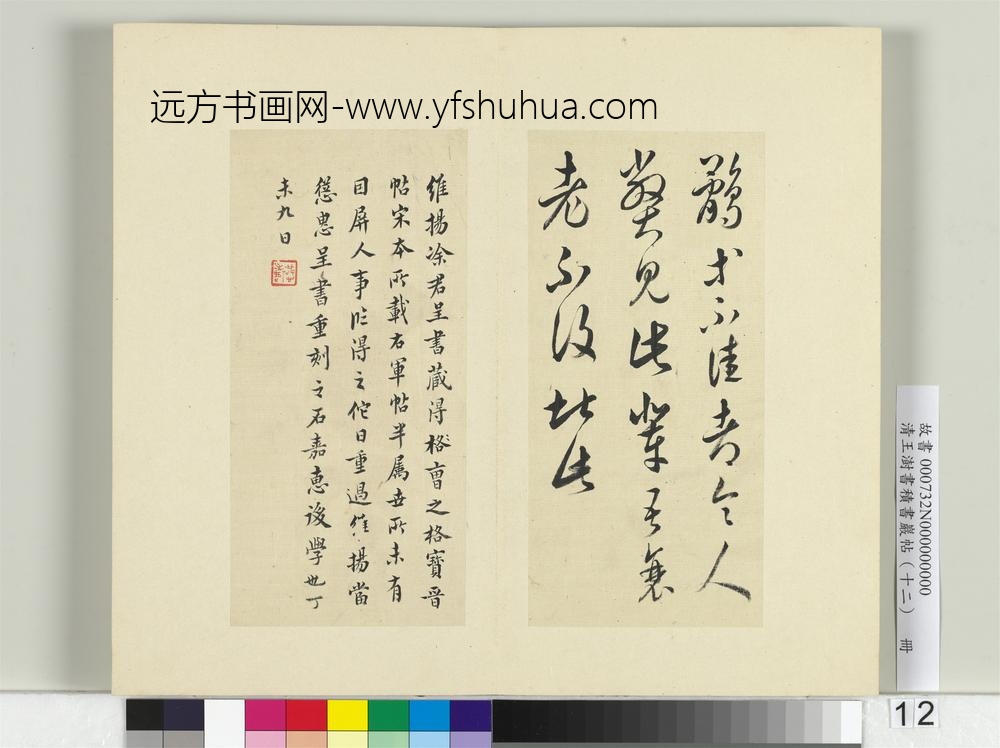 远方书画网-www.yfshuhua.com
鷂才不佳都令人
弊見此輩吾衰
老不復堪此
維揚凃君呈書藏得格曹之格寶晉
帖宋本所載右軍帖半屬世所未有
目屏人事臨得之佗日重過維揚當
慫恿呈書重刻之石嘉惠後學也丁
未九日
故書 000732N000000000
清王澍書積書巖帖(十二) 冊
12